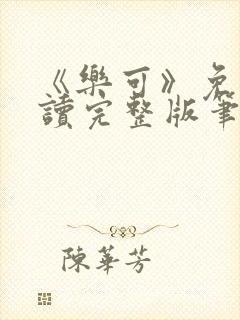 《樂可》免
讀完整版筆
陳華芳